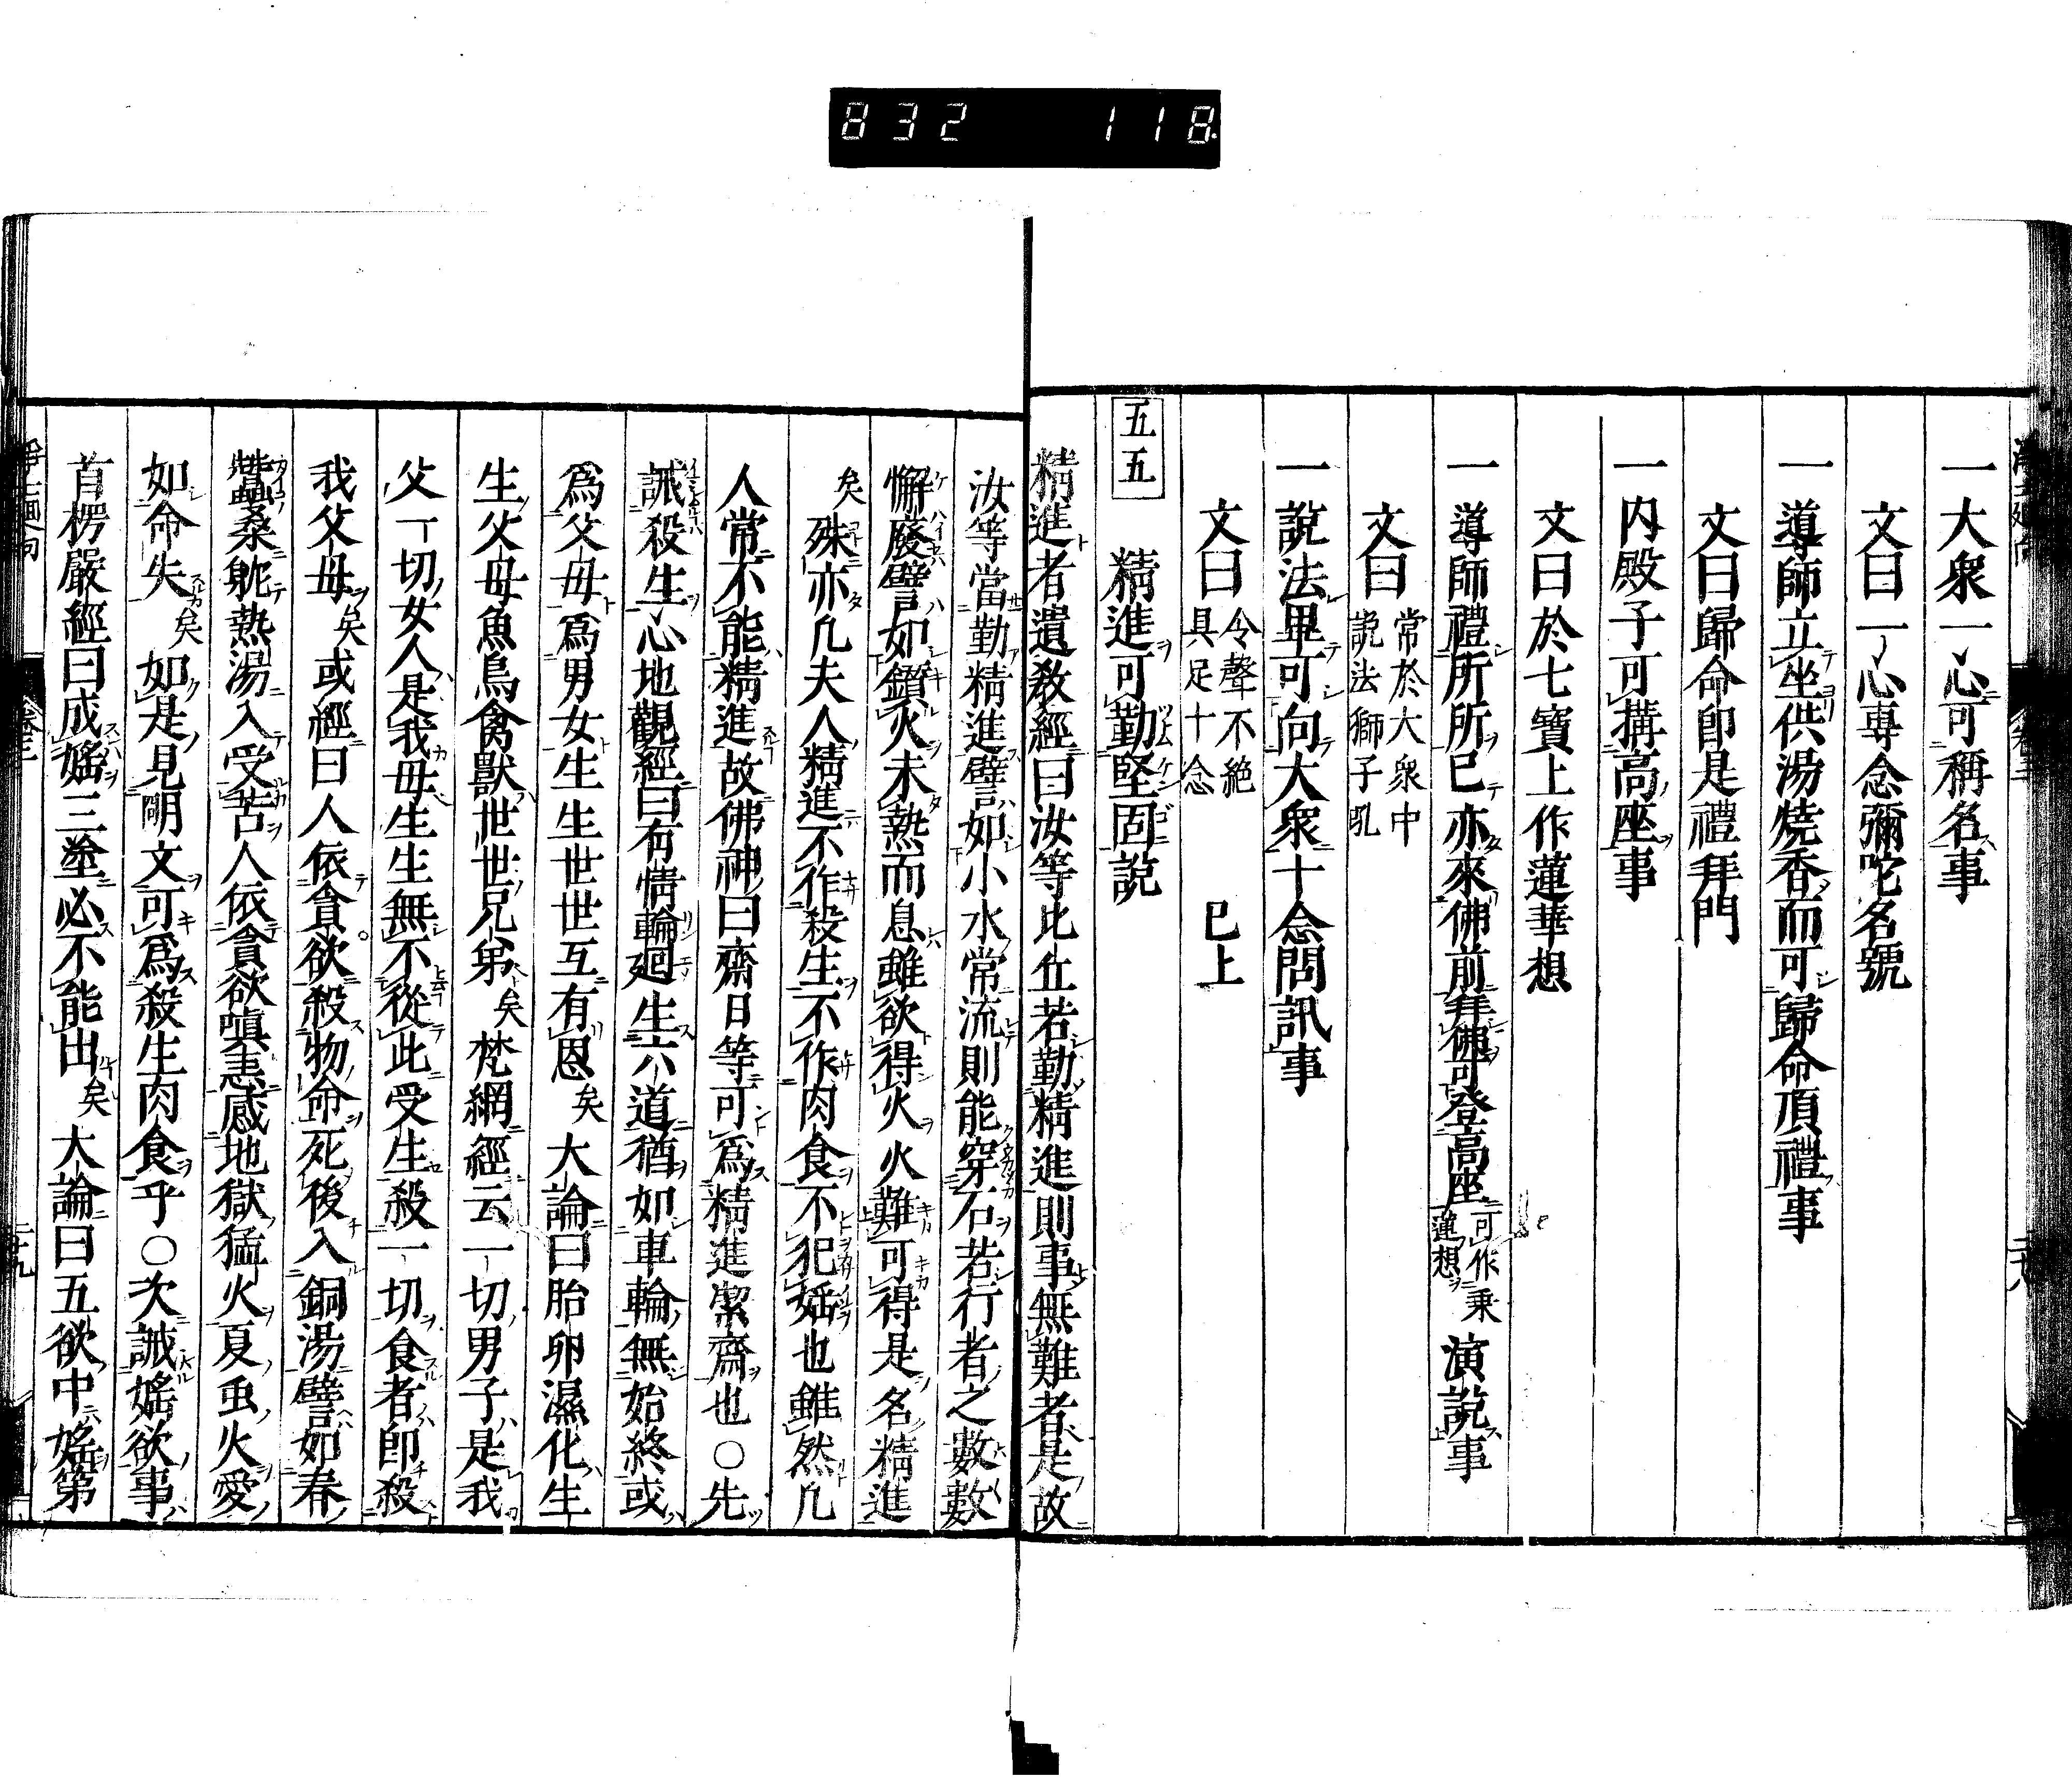 832 118
一大衆一心可稱名事
文曰一心専念彌陀名號
一導師立坐供湯燒香而可歸命頂禮事
文曰歸命即是禮拜門
一内殿子可搆高座事
文曰於七寶上作蓮華想
一導師禮所所已亦來佛前拜佛可登高座可作乘蓮想演説事
文曰常於大衆中説法獅子吼
一説法畢可向大衆十念問訊事
文曰令聲不絶具足十念 已上
五五 精進可勤堅固説
精進者遺教經曰汝等比丘若勤精進則事無難者是故
汝等當勤精進譬如小水常流則能穿石若行者之數數
懈廢譬如鑚火未熱而息雖欲得火火難可得是名精進
矣殊亦凡夫人精進不作殺生不作肉食不犯婬也雖然凡
人常不能精進故佛神曰齋日等可爲精進潔齋也○先
誡殺生心地觀經曰有情輪廻生六道猶如車輪無始終或
爲父母爲男女生生世世互有恩矣 大論曰胎卵濕化生
生父母魚鳥禽獸世世兄弟矣 梵網經云一切男子是我
父一切女人是我母生生無不從此受生殺一切食者即殺
我父母矣或經曰人依貪欲殺物命死後入銅湯譬如春
蠶桑躭熱湯入受苦人依貪欲嗔恚感地獄猛火夏虫火愛
如命失矣如是見聞文可爲殺生肉食乎○次誡婬欲事
首楞嚴經曰成婬三塗必不能出矣 大論曰五欲中婬第